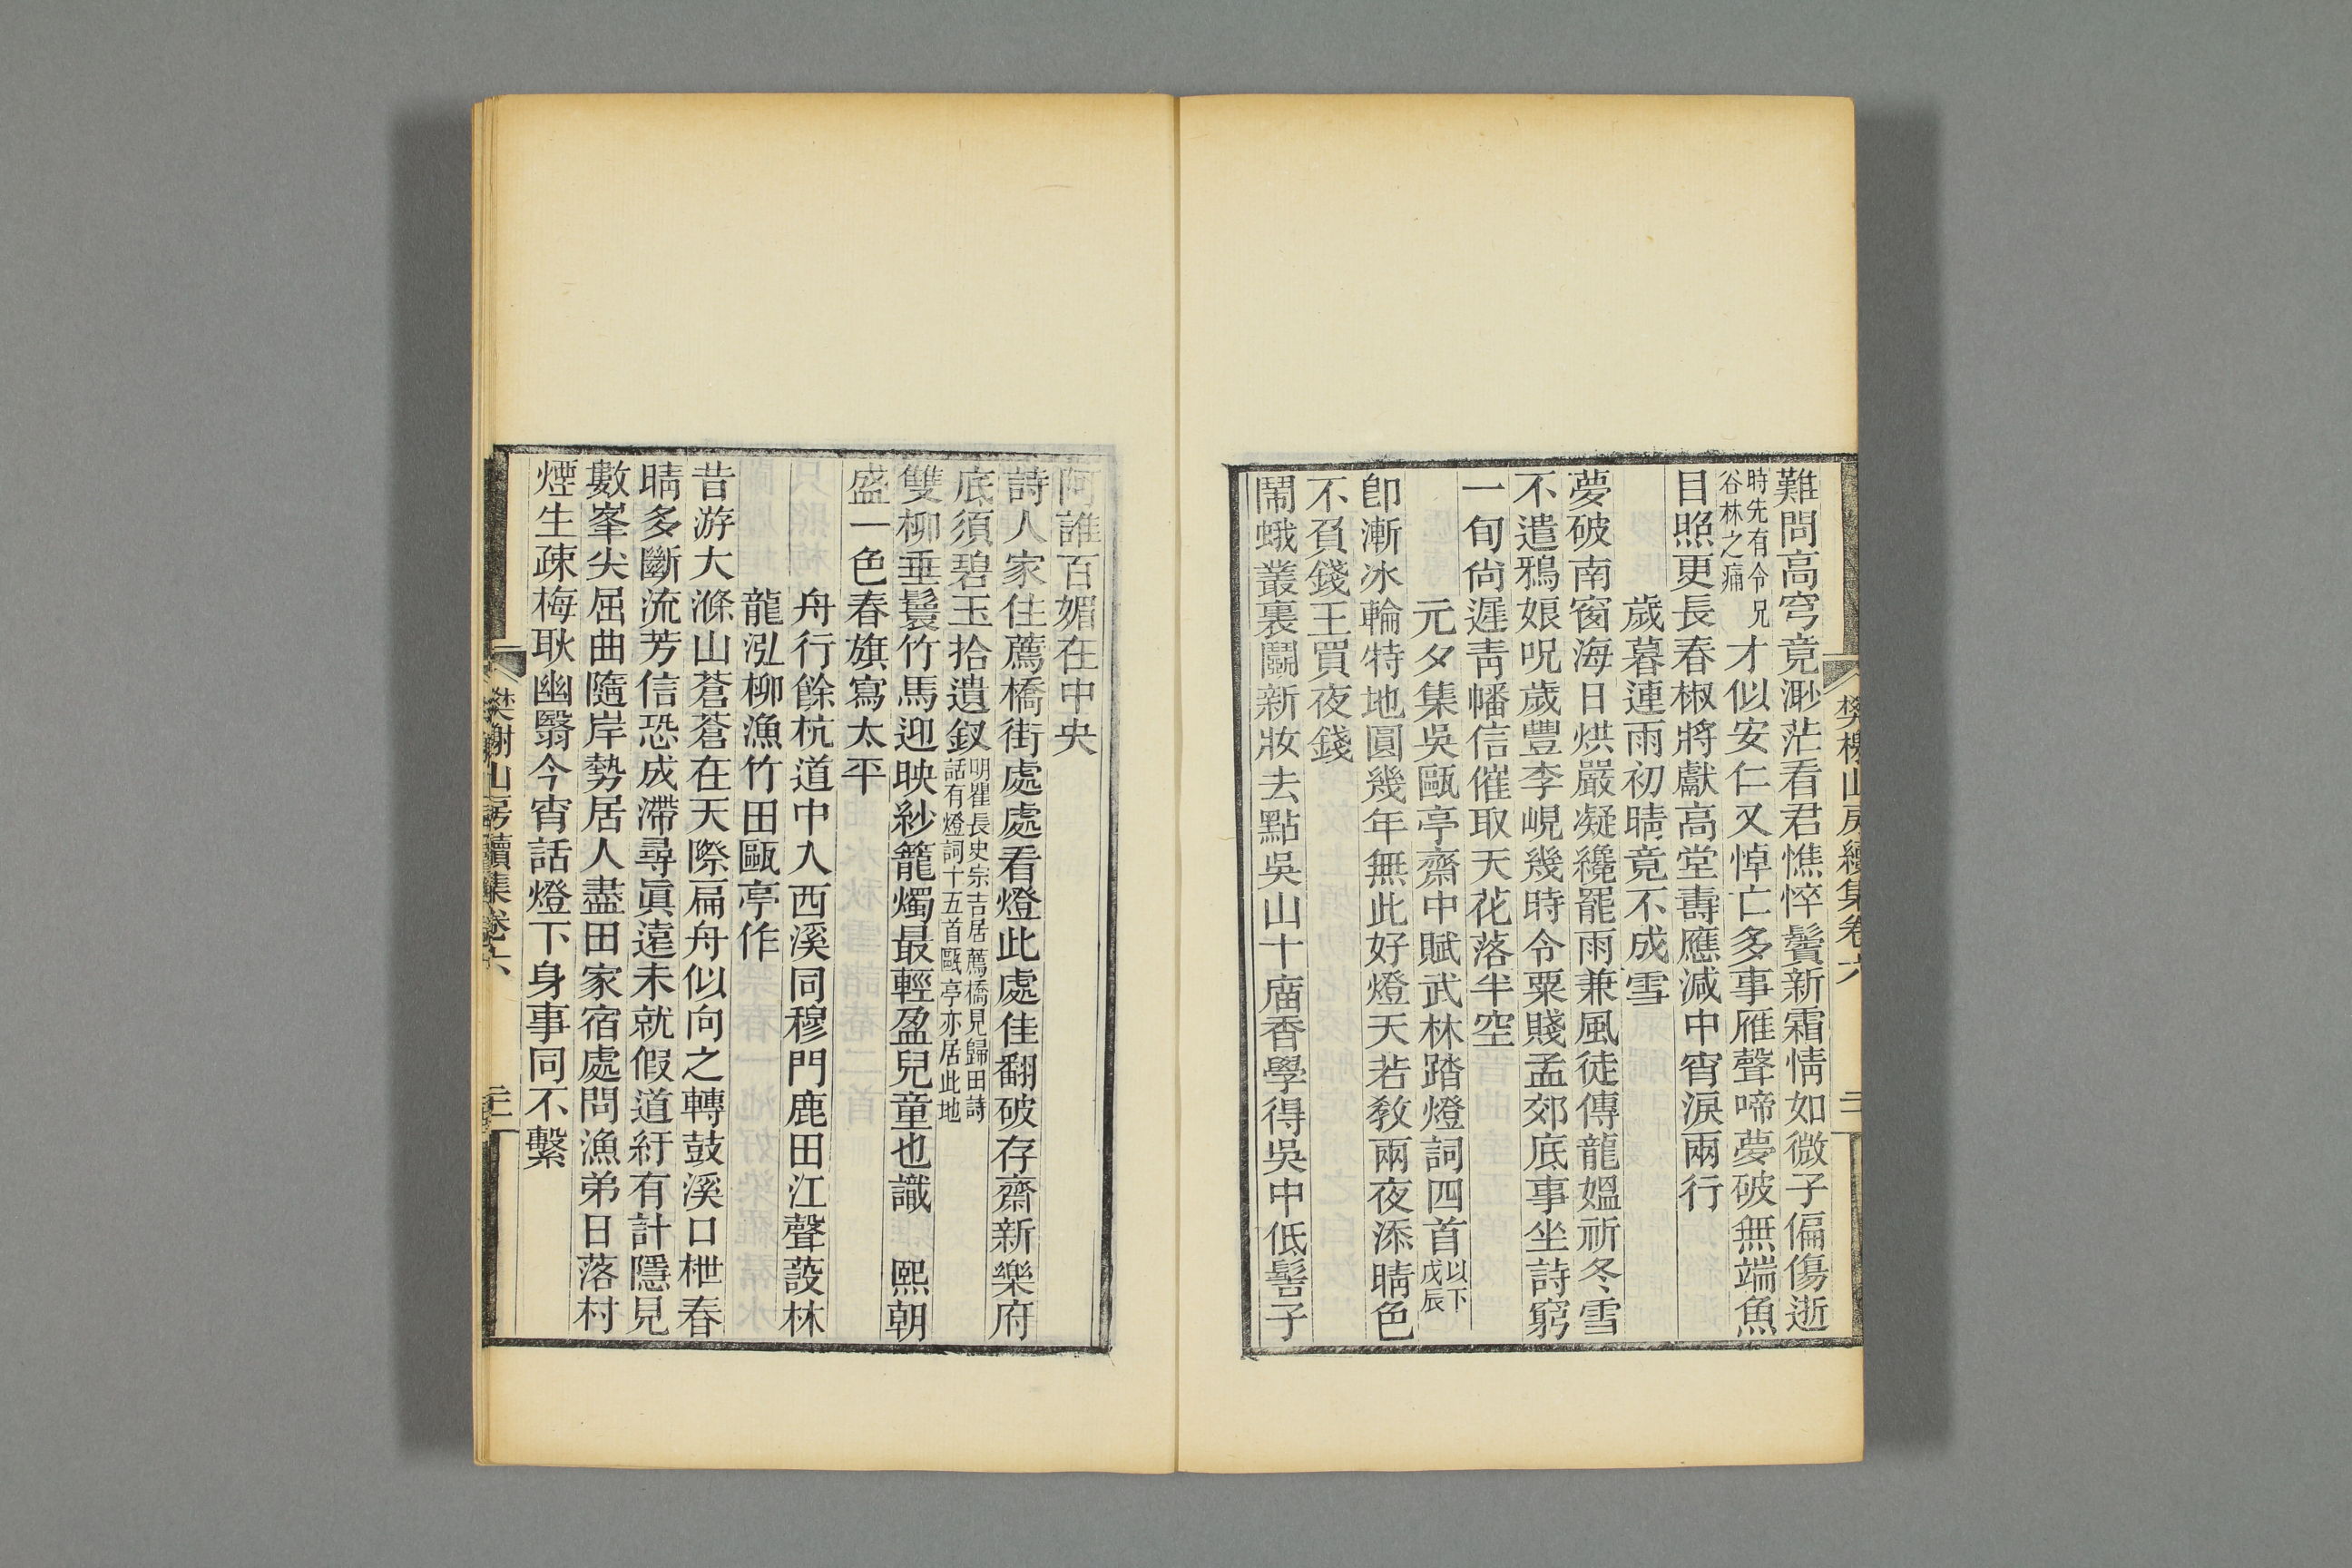 樊榭山房續集卷六 二
難問高穹竟渺茫看君憔悴鬢新霜情如微子偏傷逝
時先有令兄谷林之痛才似安仁又悼亡多事雁聲啼夢破無端魚
目照更長春椒將獻高堂壽應減中宵淚兩行
歲暮連雨初晴竟不成雪
夢破南窗海日烘嚴凝纔罷雨兼風徒傳龍媼祈冬雪
不遣鴉娘呪歲豐李峴幾時令粟賤孟郊底事坐詩窮
一旬尙遲靑幡信催取天花落半空
元夕集吳甌亭齋中賦武林踏燈詞四首以下戊辰
卽漸冰輪特地圓幾年無此好燈天若敎兩夜添晴色
不負錢王買夜錢
鬧蛾叢裏鬭新妝去點吳山十廟香學得吳中低髻子
阿誰百媚在中央
詩人家住薦橋街處處看燈此處佳翻破存齋新樂府
底須碧玉拾遺釵明瞿長史宗吉居薦橋見歸田詩話有燈詞十五首甌亭亦居此地
雙柳垂鬟竹馬迎映紗籠燭最輕盈兒童也識 熙朝
盛一色春旗寫太平
舟行餘杭道中入西溪同穆門鹿田江聲葭林
龍泓柳漁竹田甌亭作
昔游大滌山蒼蒼在天際扁舟似向之轉鼓溪口枻春
晴多斷流芳信恐成滯尋眞遠未就假道紆有計隱見
數峯尖屈曲隨岸勢居人盡田家宿處問漁弟日落村
煙生疎梅耿幽翳今宵話燈下身事同不繫
樊榭山房續集卷六 三